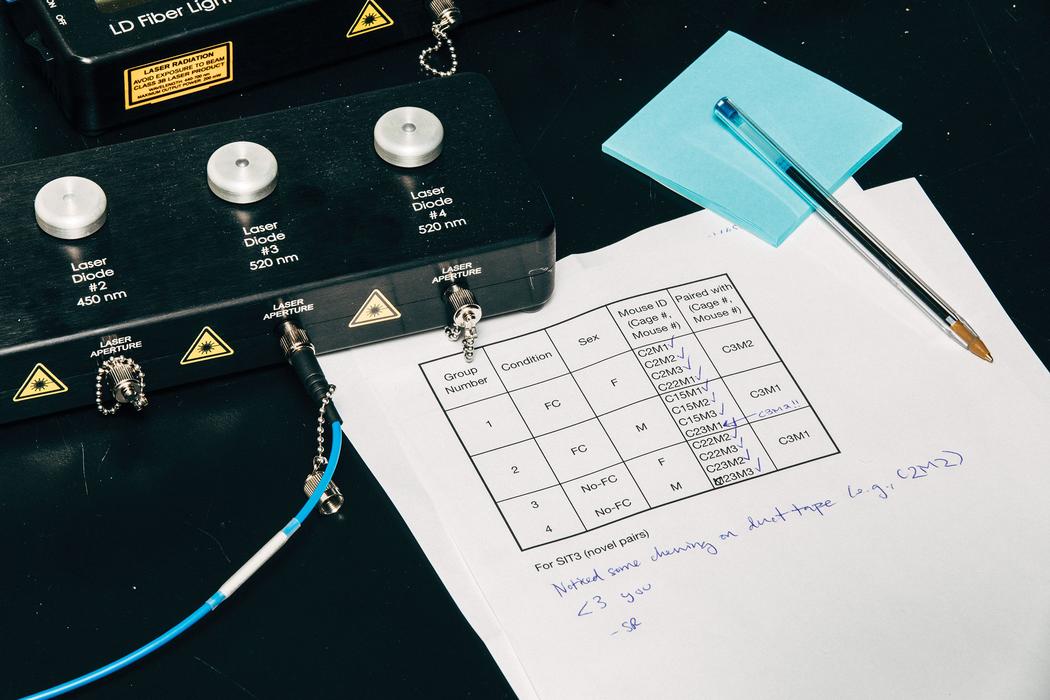 ON
OFF
LD Fiber Light
LASER RADIATION
AVOID EXPOSURE TO BEAM
CLASS 3B LASER PRODUCT
Laser
Diode
#2
450 nm
Laser
Diode
#3
520 nm
Laser
Diode
#4
520 nm
LASER
APERTURE
LASER
APERTURE
LASER
APERTURE
Group
Number
Condition
Sex
Mouse ID
(Cage #,
Mouse #)
Paired with
(Cage #,
Mouse #)
1
FC
F
C2M1✓
C2M2✓
C2M3✓
C22M1✓
C3M2
2
FC
M
C15M1✓
C15M2✓
C15M3✓
C23M1
C3M1
C3M2!!
3
No-FC
F
C22M2✓
C22M3✓
4
No-FC
M
C23M2✓
M23M3✓
C3M1
For SIT3 (novel pairs)
Noticed some chewing on duct tape (e.g., C2M2)
<3 you
-SR